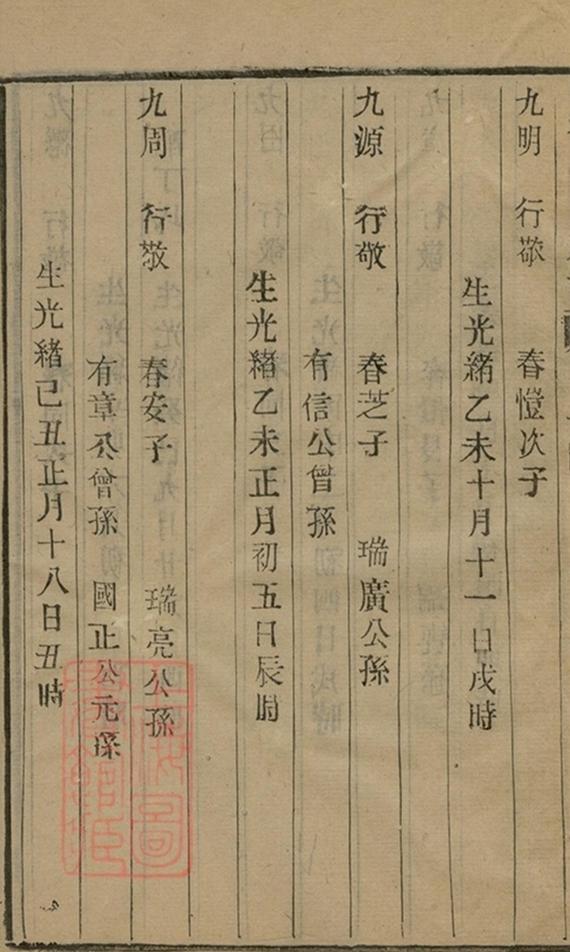 九明 行敬 春憶次子
生光緒乙未十月十一日戌時
九源 行敬 春芝子 瑞廣公孫
有信公曾孫
生光緒乙未正月初五日辰時
九周 行敬 春安子 瑞亮公孫
有章公曾孫 國正公元孫
生光緒己丑正月十八日丑時